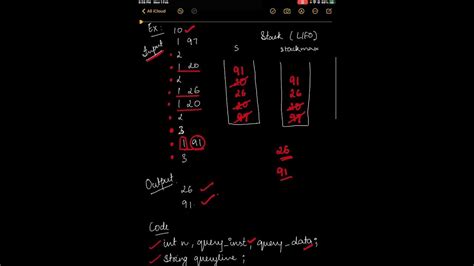 All iCloud
Ex: 10
Stack (LIFO)
Input
1 97
S
stackmax
2
1 20
2
1 26
1 20
2
3
1 91
3
91
20
26
20
97
91
26
20
97
26
91
Output
26
91
Code
int n, query_inst, query_data;
string queryline;